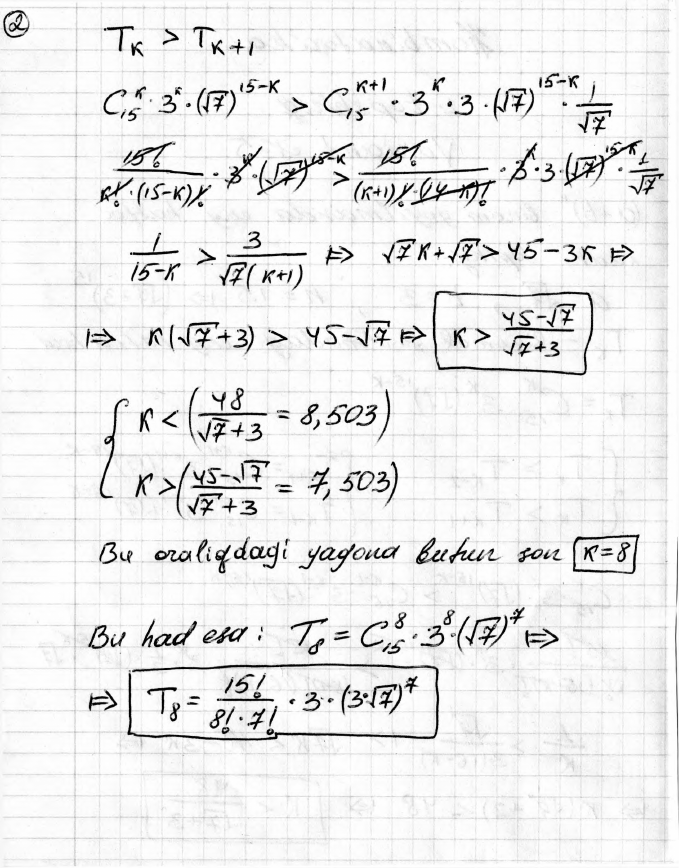 ②
T_K > T_{K+1}
C_{15}^{K} · 3^{K} · (√7)^{15-K} > C_{15}^{K+1} · 3^{K} · 3 · (√7)^{15-K} · 1/√7
15!/(K! · (15-K)!) · 3^{K} · (√7)^{15-K} > 15!/((K+1)! · (14-K)!) · 3^{K} · 3 · (√7)^{15-K} · 1/√7
1/(15-K) > 3/(√7(K+1)) ⇒ √7K+√7 > 45-3K ⇒
⇒ K(√7+3) > 45-√7 ⇒ K > (45-√7)/(√7+3)
{ K < (48/(√7+3) = 8,503)
K > ((45-√7)/(√7+3) = 7,503)
Bu oraliqdagi yagona butun son K=8
Bu had esa: T_8 = C_{15}^{8} · 3^{8} · (√7)^{7} ⇒
⇒ T_8 = 15!/(8! · 7!) · 3 · (3·√7)^{7}